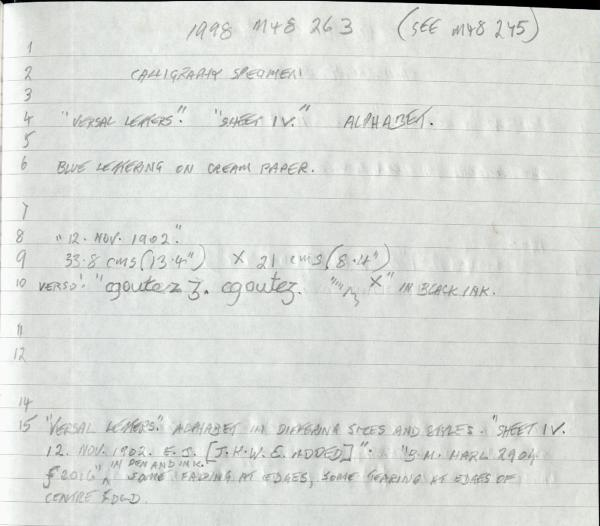 1998 M48 263 (SEE M48 245)
1
2 CALLIGRAPHY SPECIMEN
3
4 "VERSAL LETTERS". "SHEET IV." ALPHABET.
5
6 BLUE LETTERING ON CREAM PAPER.
7
8 "12. NOV. 1902."
9 33.8 cms (13.4") X 21 cms (8.4")
10 VERSO: "agoutez z. agoutez. X" IN BLACK INK.
11
12
14
15 "VERSAL LETTERS." ALPHABET IN DIFFERING SIZES AND STYLES. "SHEET IV.
12. NOV. 1902. E.J. [J.H.W.E. ADDED]". "B.M. HARL 2904
f 201G" IN PEN AND INK. SOME FADING AT EDGES, SOME TEARING AT EDGES OF
CENTRE FOLD.